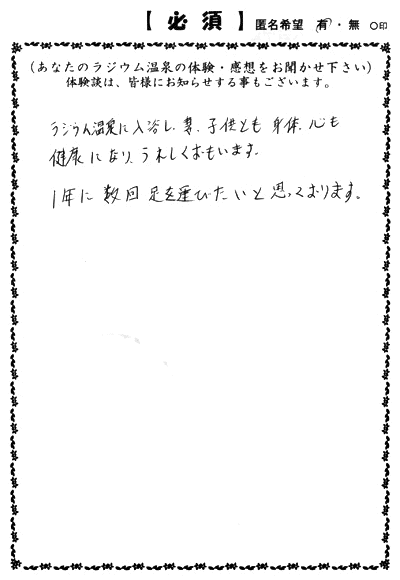 【必須】 匿名希望 有・無 ○印
(あなたのラジウム温泉の体験・感想をお聞かせ下さい)
体験談は、皆様にお知らせする事もございます。
ラジウム温泉に入浴し、妻、子供とも身体、心も
健康になり、うれしくおもいます。
1年に数回足を運びたいと思っております。